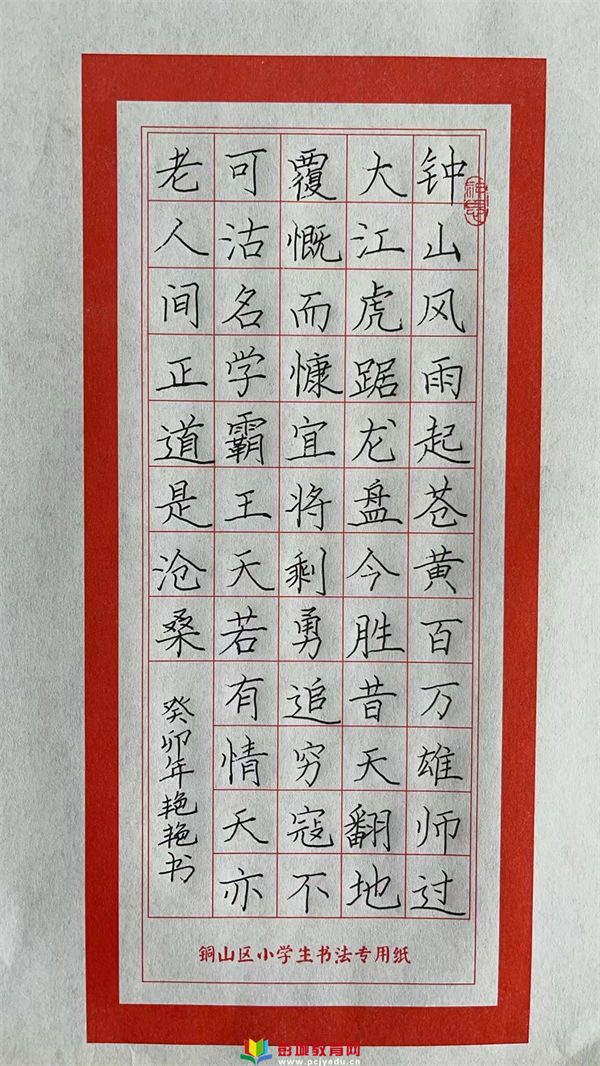 钟山风雨起苍黄百万雄师过
大江虎踞龙盘今胜昔天翻地
覆慨而慷宜将剩勇追穷寇不
可沽名学霸王天若有情天亦
老人间正道是沧桑
癸卯年艳艳书
铜山区小学生书法专用纸
彭城教育网
www.pcjyedu.cn